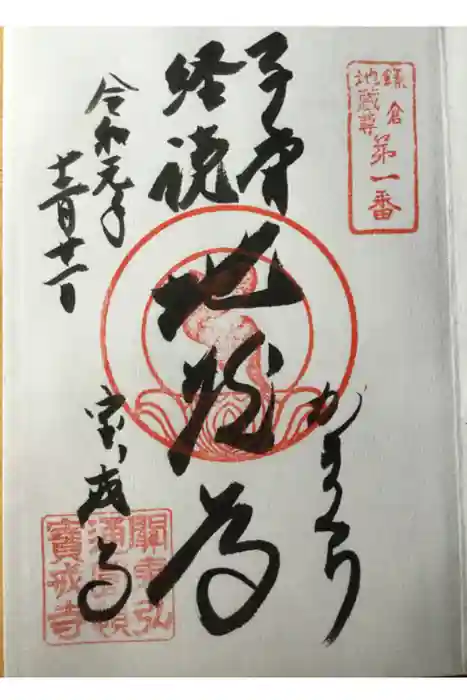 鎌倉
地蔵尊
第一番
子育
経読
地蔵尊
かまくら
令和元年
十二月十一日
宝戒寺
關東弘
通圓頓
寶戒寺